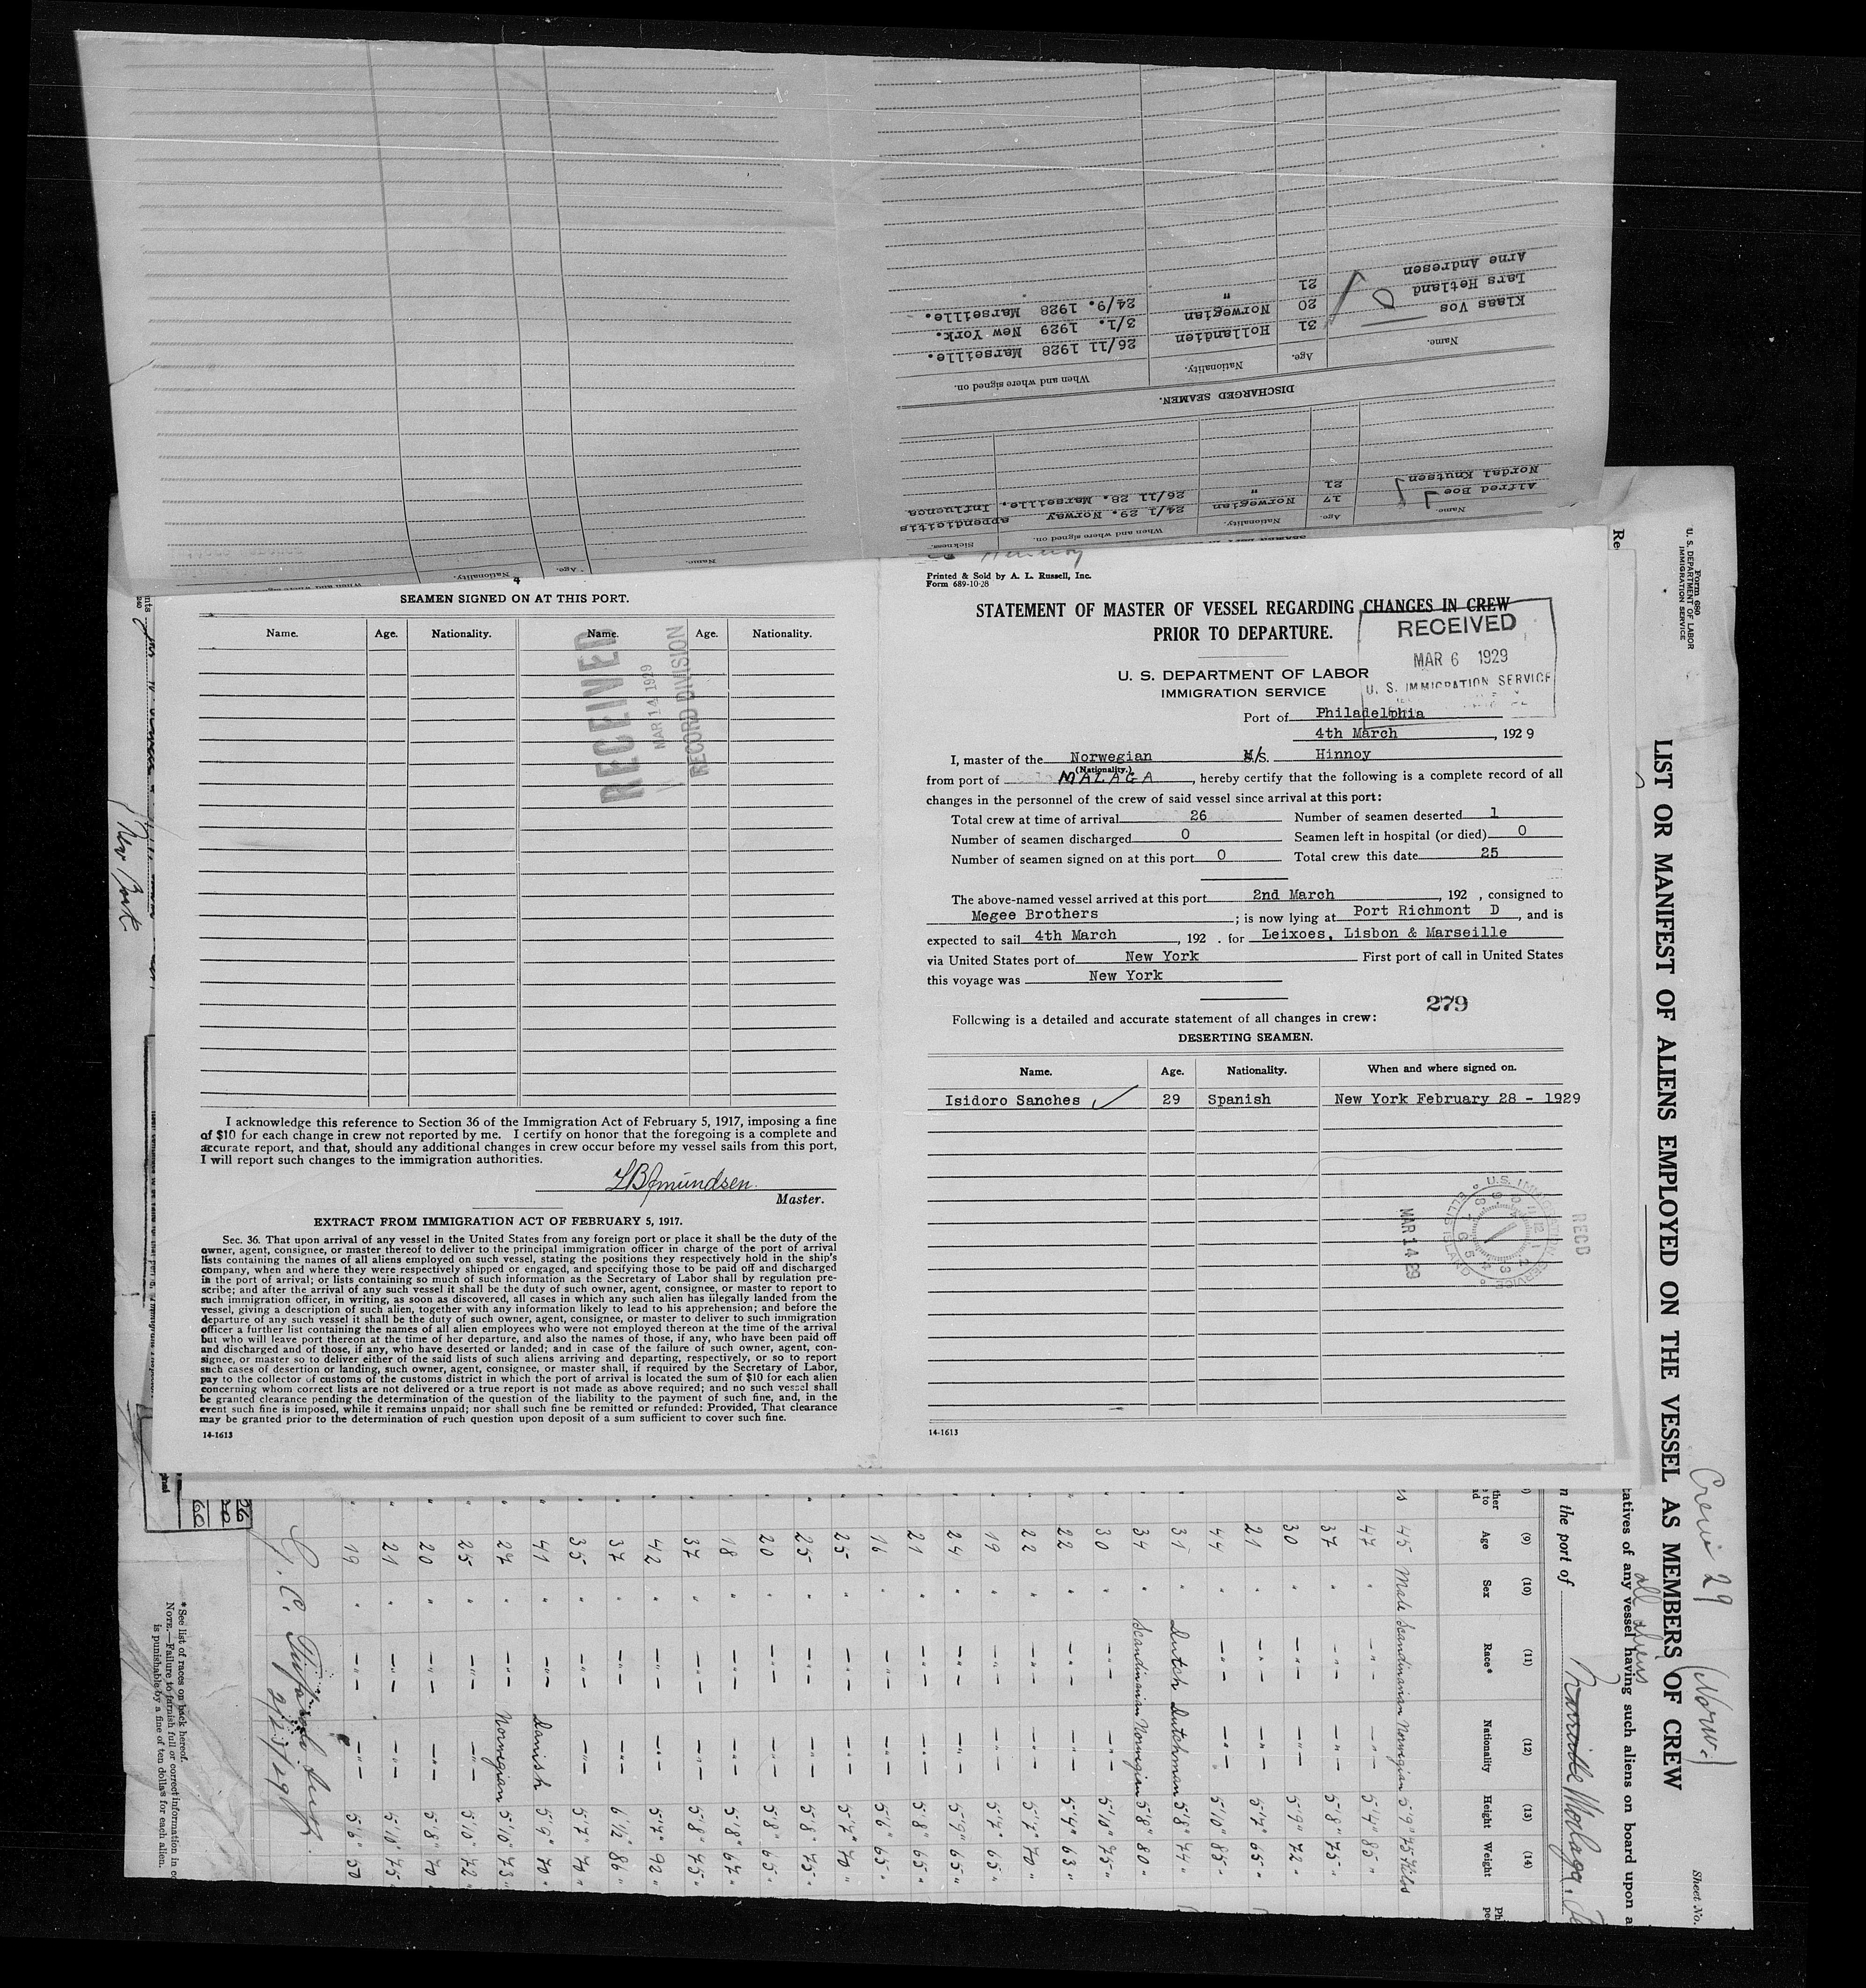 Arne Andresen 21 " 24/9. 1928 Marseille.
Lars Hetland 20 Norwegian 3/1. 1929 New York.
Klaas Vos 31 Hollandien 26/11 1928 Marseille.
Name. Age. Nationality. When and where signed on.
DISCHARGED SEAMEN.
Nordal Knutsen 21 " 26/11 28. Marseille, Influence
Alfred Boe 17 Norwegian 24/1 29. Norway appendicitis
Name. Age. Nationality. When and where signed on. Sickness.
Name. Age. Nationality.
4
SEAMEN SIGNED ON AT THIS PORT.
Name. Age. Nationality. Name. Age. Nationality.
RECEIVED
MAR 14 1929
RECORD DIVISION
I acknowledge this reference to Section 36 of the Immigration Act of February 5, 1917, imposing a fine
of $10 for each change in crew not reported by me. I certify on honor that the foregoing is a complete and
accurate report, and that, should any additional changes in crew occur before my vessel sails from this port,
I will report such changes to the immigration authorities.
Master.
EXTRACT FROM IMMIGRATION ACT OF FEBRUARY 5, 1917.
Sec. 36. That upon arrival of any vessel in the United States from any foreign port or place it shall be the duty of the
owner, agent, consignee, or master thereof to deliver to the principal immigration officer in charge of the port of arrival
lists containing the names of all aliens employed on such vessel, stating the positions they respectively hold in the ship's
company, when and where they were respectively shipped or engaged, and specifying those to be paid off and discharged
in the port of arrival; or lists containing so much of such information as the Secretary of Labor shall by regulation pre-
scribe; and after the arrival of any such vessel it shall be the duty of such owner, agent, consignee, or master to report to
such immigration officer, in writing, as soon as discovered, all cases in which any such alien has illegally landed from the
vessel, giving a description of such alien, together with any information likely to lead to his apprehension; and before the
departure of any such vessel it shall be the duty of such owner, agent, consignee, or master to deliver to such immigration
officer a further list containing the names of all alien employees who were not employed thereon at the time of the arrival
but who will leave port thereon at the time of her departure, and also the names of those, if any, who have been paid off
and discharged and of those, if any, who have deserted or landed; and in case of the failure of such owner, agent, con-
signee, or master so to deliver either of the said lists of such aliens arriving and departing, respectively, or so to report
such cases of desertion or landing, such owner, agent, consignee, or master shall, if required by the Secretary of Labor,
pay to the collector of customs of the customs district in which the port of arrival is located the sum of $10 for each alien
concerning whom correct lists are not delivered or a true report is not made as above required; and no such vessel shall
be granted clearance pending the determination of the question of the liability to the payment of such fine, and, in the
event such fine is imposed, while it remains unpaid; nor shall such fine be remitted or refunded: Provided, That clearance
may be granted prior to the determination of such question upon deposit of a sum sufficient to cover such fine.
14-1613
Hinnoy
Printed & Sold by A. L. Russell, Inc.
Form 689-10-28
STATEMENT OF MASTER OF VESSEL REGARDING CHANGES IN CREW
PRIOR TO DEPARTURE.
RECEIVED
MAR 6 1929
U. S. IMMIGRATION SERVICE
U. S. DEPARTMENT OF LABOR
IMMIGRATION SERVICE
Port of Philadelphia
4th March, 1929
I, master of the Norwegian M/S. Hinnoy
(Nationality.)
from port of MALAGA, hereby certify that the following is a complete record of all
changes in the personnel of the crew of said vessel since arrival at this port:
Total crew at time of arrival 26 Number of seamen deserted 1
Number of seamen discharged 0 Seamen left in hospital (or died) 0
Number of seamen signed on at this port 0 Total crew this date 25
The above-named vessel arrived at this port 2nd March, 192 , consigned to
Megee Brothers ; is now lying at Port Richmont D, and is
expected to sail 4th March, 192 . for Leixoes, Lisbon & Marseille
via United States port of New York First port of call in United States
this voyage was New York
279
Following is a detailed and accurate statement of all changes in crew:
DESERTING SEAMEN.
Name. Age. Nationality. When and where signed on.
Isidoro Sanches 29 Spanish New York February 28 - 1929
MAR 14 29
RECD
14-1613
Form 680
U. S. DEPARTMENT OF LABOR
IMMIGRATION SERVICE
Sheet No.
(Norw.)
LIST OR MANIFEST OF ALIENS EMPLOYED ON THE VESSEL AS MEMBERS OF CREW
all aliens
atives of any vessel having such aliens on board upon a
n the port of Malaga,
(9) (10) (11) (12) (13) (14)
Age Sex Race* Nationality Height Weight
45 Male Scandinavian Norwegian 5'9" 75 Kilos
47 " -"- -"- 5'4" 85 "
37 " -"- -"- 5'8" 75 "
30 " -"- -"- 5'9" 72 "
21 " -"- -"- 5'7" 65 "
44 " -"- -"- 5'10" 85 "
31 " Dutch Dutchman 5'8" 74 "
34 " Scandinavian Norwegian 5'8" 80 "
30 " -"- -"- 5'10" 75 "
22 " -"- -"- 5'4" 63 "
22 " -"- -"- 5'7" 70 "
19 " -"- -"- 5'7" 65 "
24 " -"- -"- 5'9" 65 "
21 " -"- -"- 5'8" 65 "
16 " -"- -"- 5'6" 65 "
25 " -"- -"- 5'7" 70 "
25 " -"- -"- 5'8" 75 "
20 " -"- -"- 5'8" 65 "
18 " -"- -"- 5'8" 67 "
37 " -"- -"- 5'8" 75 "
42 " -"- -"- 5'7" 92 "
37 " -"- -"- 6'½ 86 "
35 " -"- -"- 5'7" 70 "
41 " -"- Danish 5'9" 70 "
27 " -"- Norwegian 5'10" 73 "
25 " -"- -"- 5'10" 72 "
20 " -"- -"- 5'8" 70 "
21 " -"- -"- 5'10" 75 "
19 " -"- -"- 5'6" 50
* See list of races on back hereof.
NOTE.—Failure to furnish full or correct information in
is punishable by a fine of ten dollars for each alien.
New York